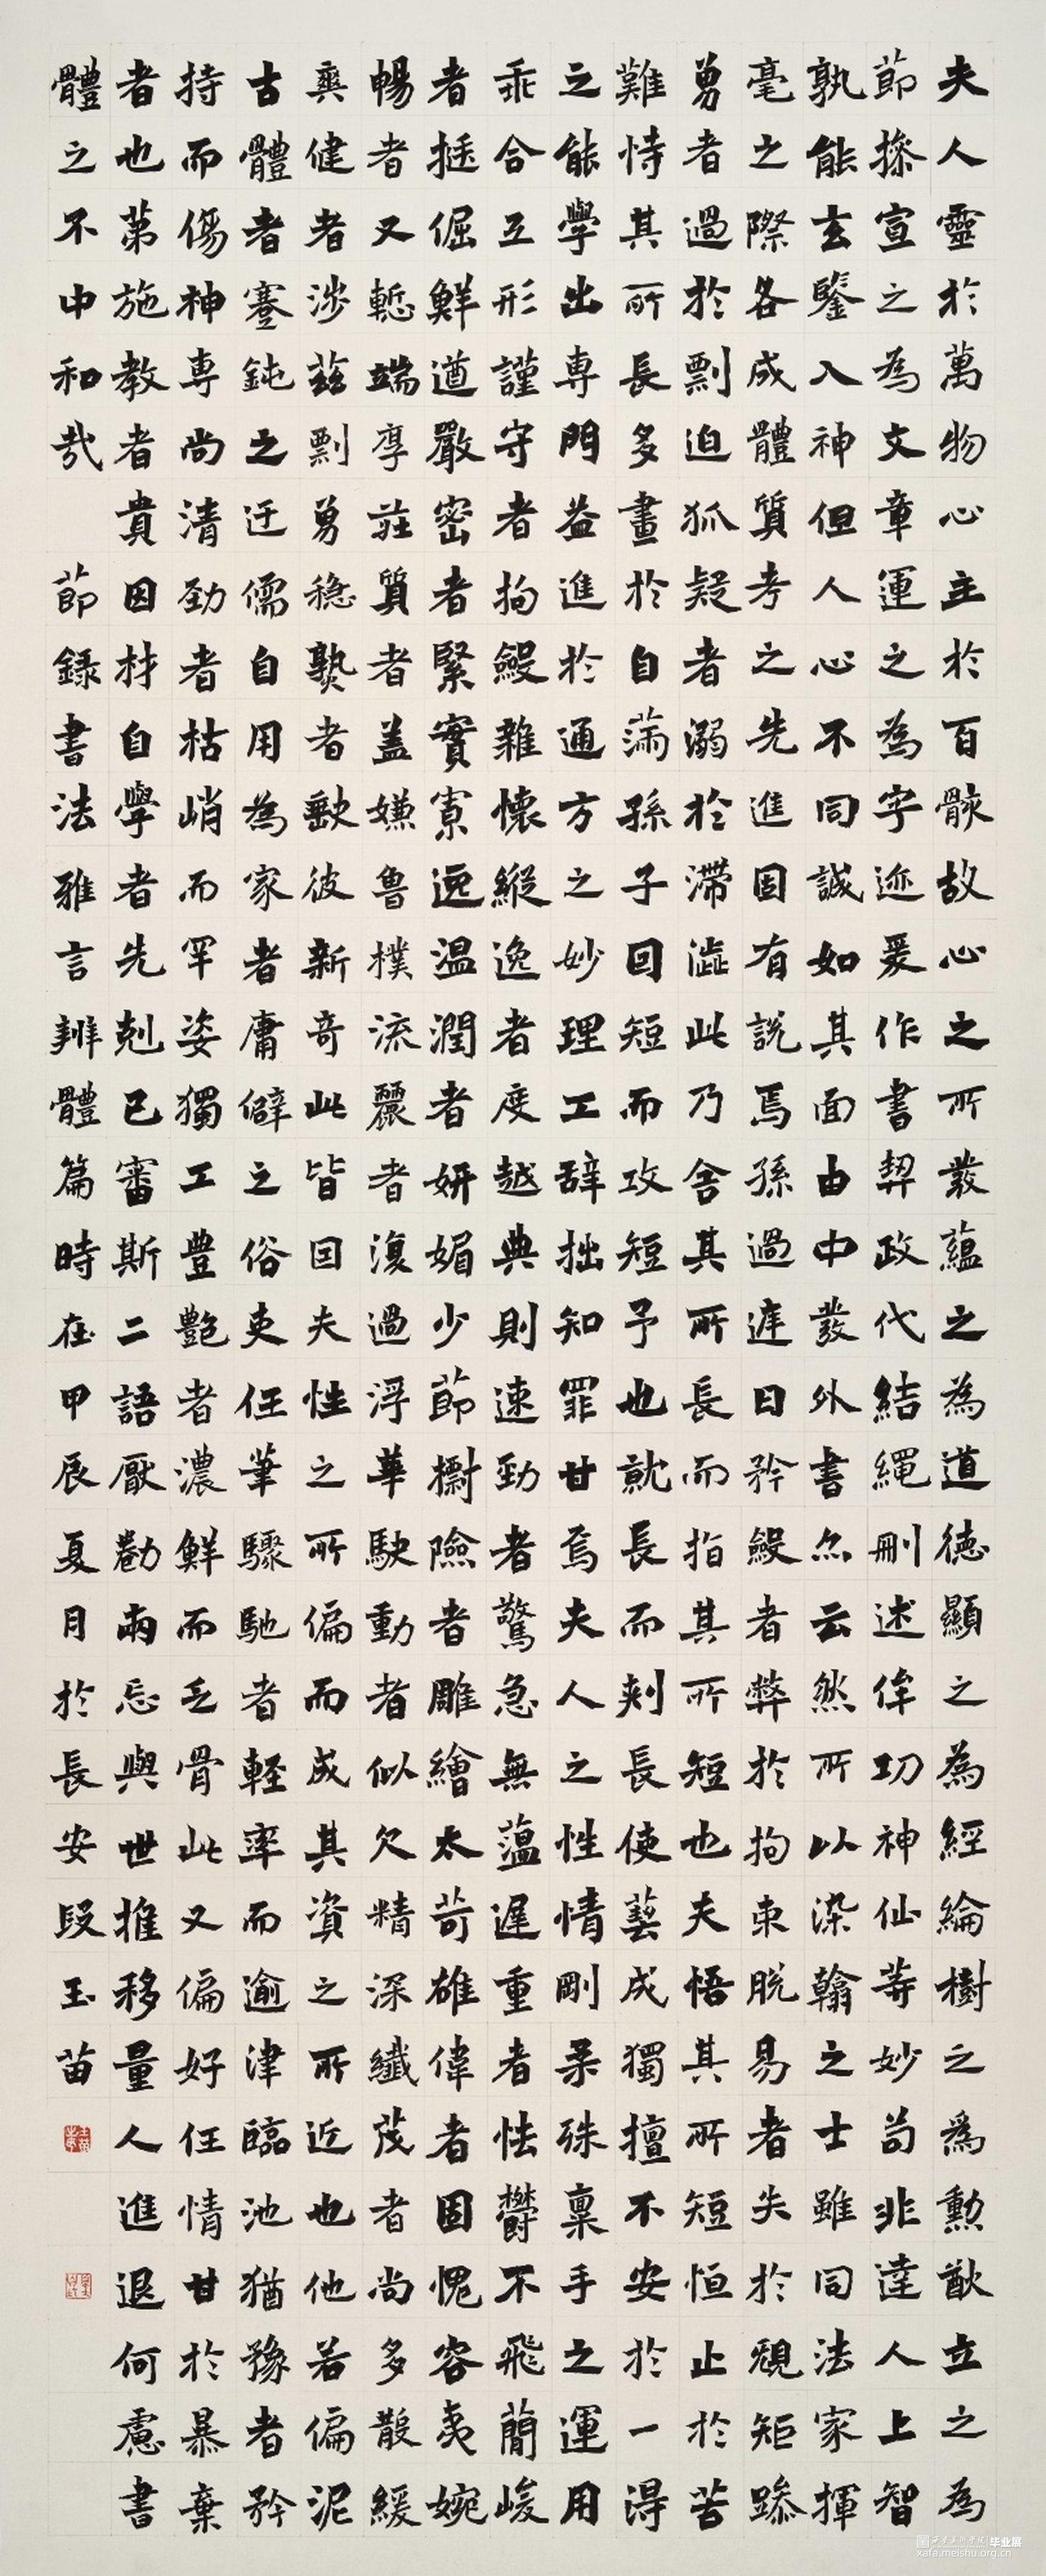 夫人靈於萬物心主於百骸故心之所發蘊之為道德顯之為經綸樹之為勳猷立之為
節操宣之為文章運之為字迹爰作書契政代結繩刪述侔功神仙等妙苟非達人上智
孰能玄鑒入神但人心不同誠如其面由中發外書亦云然所以染翰之士雖同法家揮
毫之際各成體質考之先進固有說焉孫過庭曰矜斂者弊於拘束脫易者失於規矩躁
勇者過於剽迫狐疑者溺於滯澁此乃舍其所長而指其所短也夫悟其所短恒止於苦
難恃其所長多畫於自滿孫子因短而攻短予也就長而刺長使藝成獨擅不安於一得
之能學出專門益進於通方之妙理工辭拙知罪甘焉夫人之性情剛柔殊稟手之運用
乖合互形謹守者拘斂雜懷縱逸者度越典則速勁者驚急無蘊遲重者怯鬱不飛簡峻
者挺倔鮮遒嚴密者緊實寡逸溫潤者妍媚少節標險者雕繪太苛雄偉者固愧容夷婉
暢者又慙端厚莊質者蓋嫌魯樸流麗者復過浮華駛動者似欠精深纖茂者尚多散緩
爽健者涉茲剽勇穩熟者歉彼新奇此皆因夫性之所偏而成其資之所近也他若偏泥
古體者蹇鈍之迂儒自用為家者庸僻之俗吏任筆驟馳者輕率而逾津臨池猶豫者矜
持而傷神專尚清勁者枯峭而罕姿獨工豐艷者濃鮮而乏骨此又偏好任情甘於暴棄
者也第施教者貴因材自學者先剋己審斯二語厭勸兩忘與世推移量人進退何慮書
體之不中和哉
節錄書法雅言辨體篇時在甲辰夏月於長安段玉苗
毕业展
xafa.meishu.org.cn